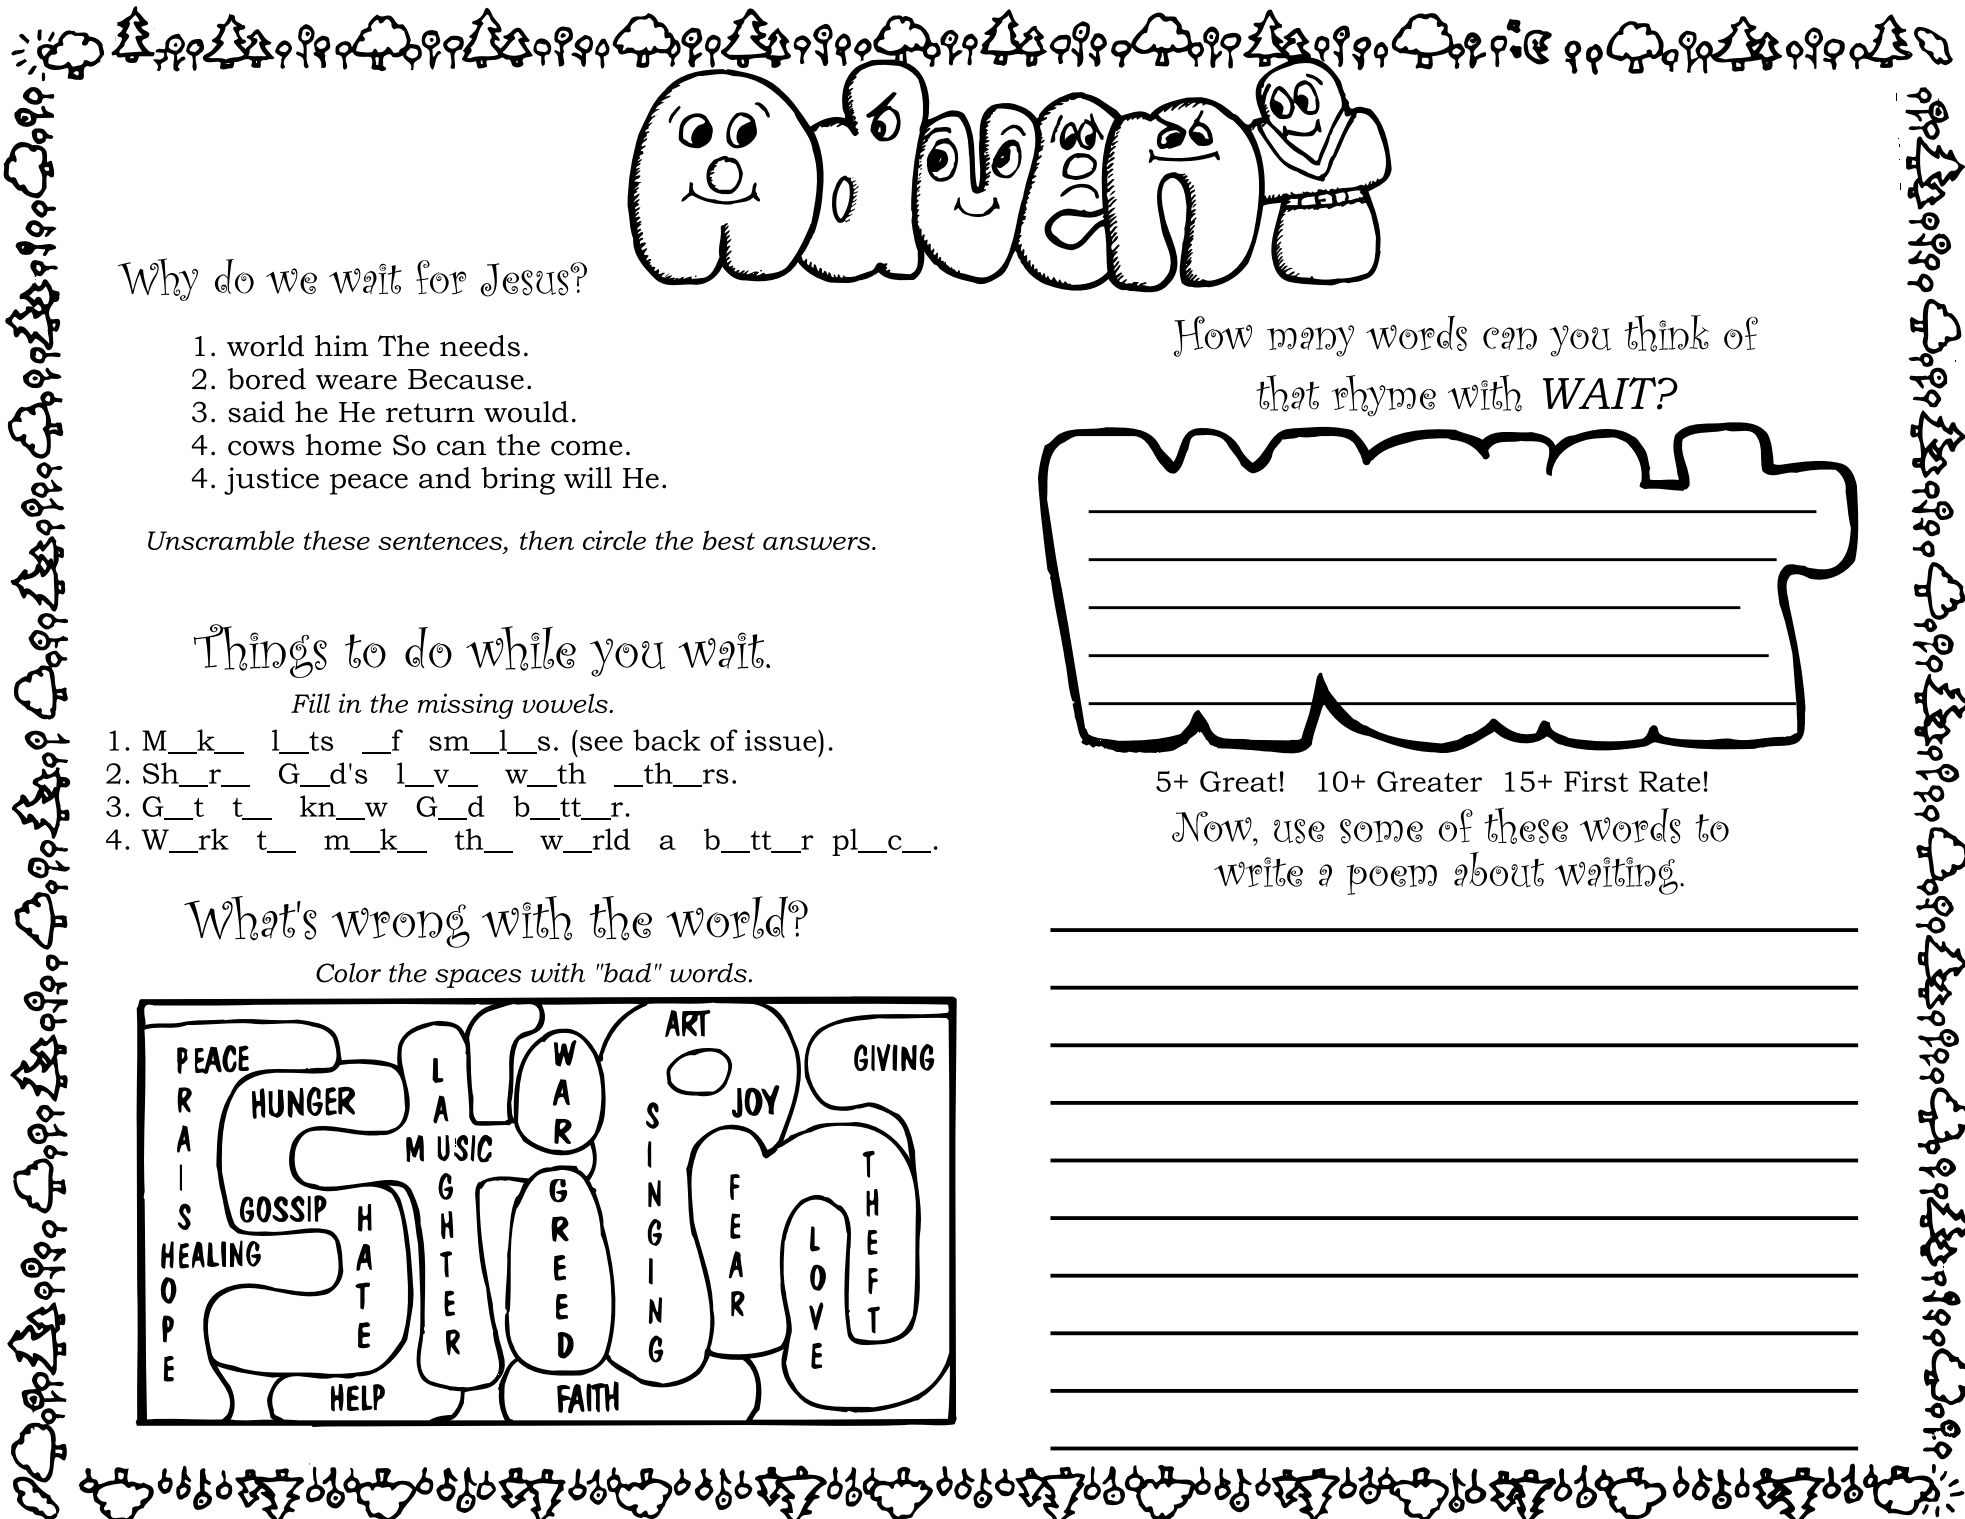 Advent
Why do we wait for Jesus?
1. world him The needs.
2. bored weare Because.
3. said he He return would.
4. cows home So can the come.
4. justice peace and bring will He.
Unscramble these sentences, then circle the best answers.
Things to do while you wait.
Fill in the missing vowels.
1. M__k__ l__ts __f sm__l__s. (see back of issue).
2. Sh__r__ G__d's l__v__ w__th __th__rs.
3. G__t t__ kn__w G__d b__tt__r.
4. W__rk t__ m__k__ th__ w__rld a b__tt__r pl__c__.
What's wrong with the world?
Color the spaces with "bad" words.
PEACE
PRAISE
HUNGER
LAUGHTER
MUSIC
WAR
ART
JOY
GIVING
SINGING
GOSSIP
HATE
GREED
FEAR
LOVE
THEFT
HEALING
HOPE
HELP
FAITH
How many words can you think of
that rhyme with WAIT?
5+ Great! 10+ Greater 15+ First Rate!
Now, use some of these words to
write a poem about waiting.